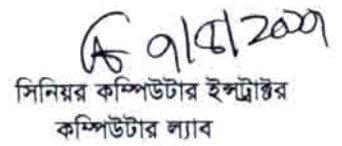 সিনিয়র কম্পিউটার ইন্সট্রাক্টর
কম্পিউটার ল্যাব